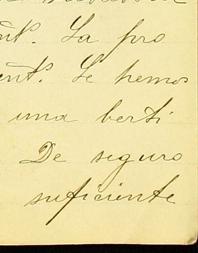 ent. La pro
ent. Le hemos
una berti
De seguro
suficiente